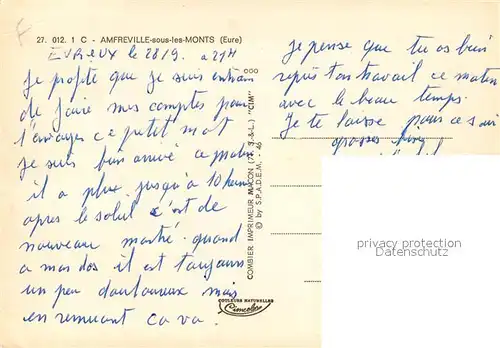 27. 012. 1 C - AMFREVILLE-sous-les-MONTS (Eure)
EVREUX le 28/9. a 21H
Je profite que je suis entrain
de faire mes comptes pour
t'envoyer ce petit mot
Je suis bien arrivé ce matin
il a plux jusqu'à 10 heures
apres le soleil c'est de
nouveau montré. quand
a mon dos il est toujours
un peu douloureux mais
en remuant ca va.
COMBIER IMPRIMEUR MACON (S.-&-L.) "CIM"
© by S.P.A.D.E.M. - 46
COULEURS NATURELLES
Cimcolor
Je pense que tu as bien
repris ton travail ce matin
avec le beau temps.
Je te laisse pour ce soir
grosses
privacy protection
Datenschutz